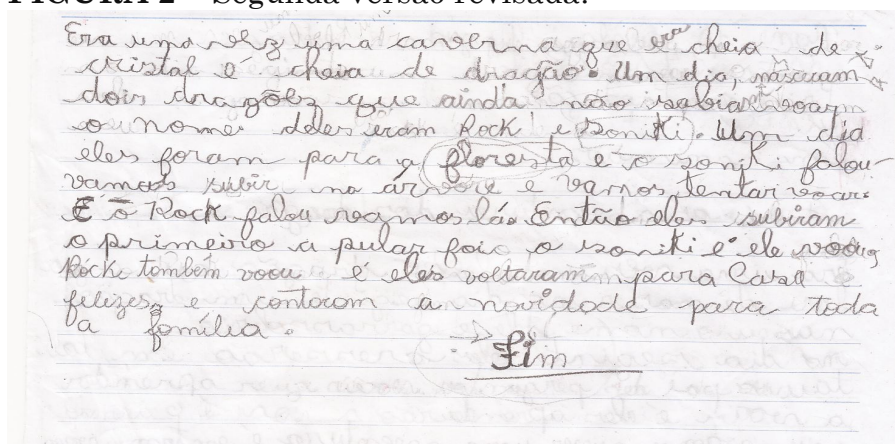 FIGURA 2 – Segunda versão revisada.
Era uma vez uma caverna que era cheia de
cristal é cheia de dragão. Um dia, násceram
dois dragõez que ainda não sabiam voarm
o nome deles eram Rock e soniki. Um dia
eles foram para a floresta e o soniki falou
vamos subir na árvore e vamos tentar voar.
E o Rock falou vamos lá. Então eles subiram
o primeiro a pular foi o soniki e ele voou
Rock também voou é eles voltaram para Casa
felizes, e contaram a novidade para toda
a família.
→ Fim